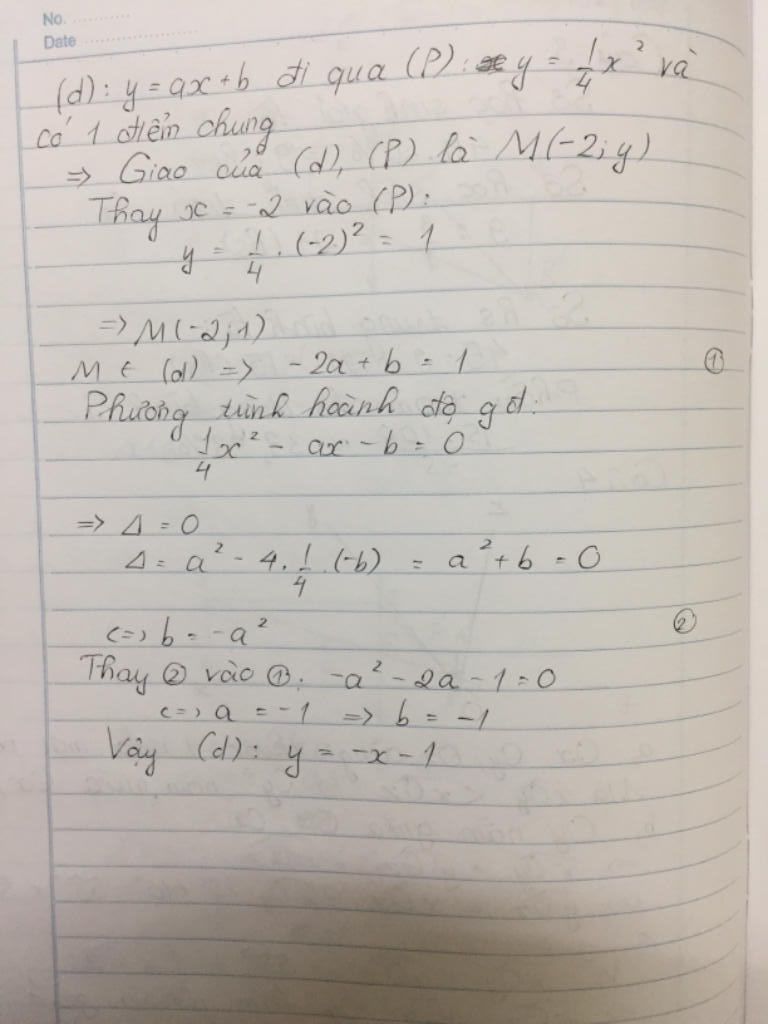 No. ............
Date ........................
(d): y = ax + b đi qua (P): y = 1/4 x² và
có 1 điểm chung
=> Giao của (d), (P) là M(-2; y)
Thay x = -2 vào (P):
y = 1/4 . (-2)² = 1
=> M(-2; 1)
M ∈ (d) => -2a + b = 1 ①
Phương trình hoành độ gđ:
1/4 x² - ax - b = 0
=> Δ = 0
Δ = a² - 4 . 1/4 . (-b) = a² + b = 0
<=> b = -a² ②
Thay ② vào ①: -a² - 2a - 1 = 0
<=> a = -1 => b = -1
Vậy (d): y = -x - 1